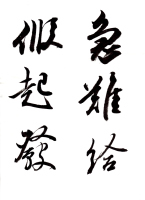 急難給
假起發